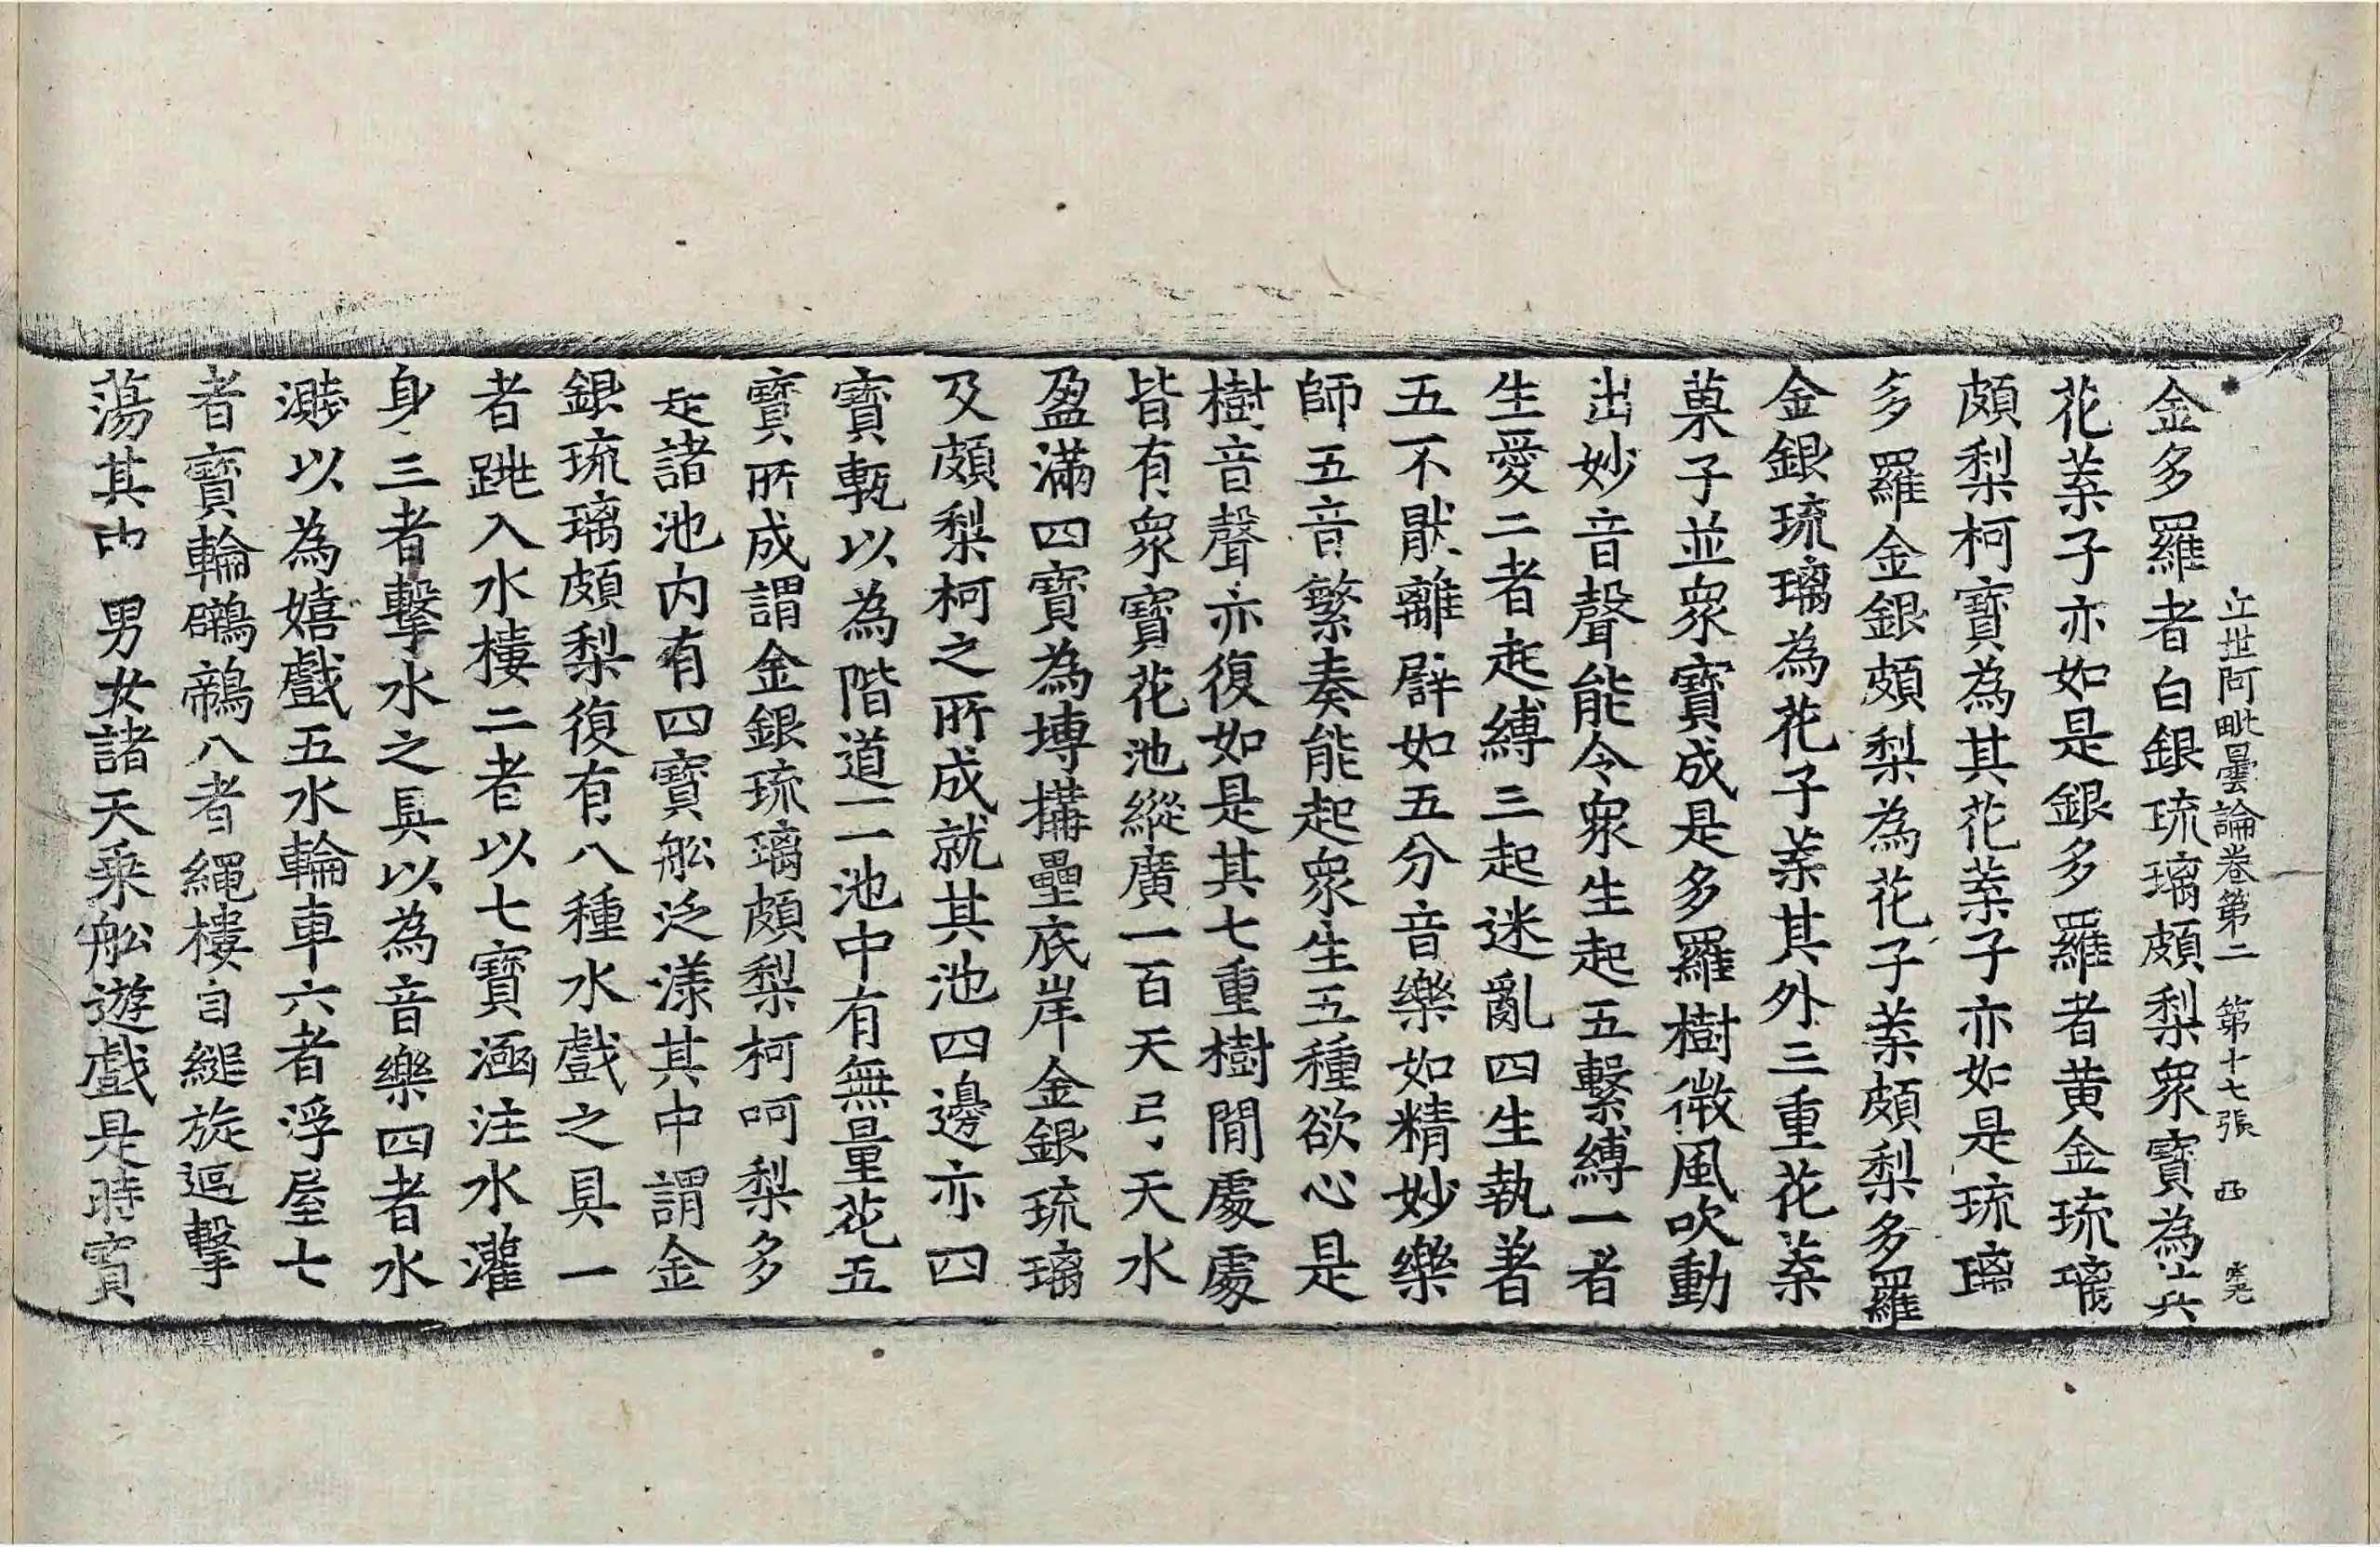 立世阿毗曇論卷第二 第十七張 西
金多羅者白銀琉璃頗梨眾寶為其
花葉子亦如是銀多羅者黄金琉璃
頗梨柯寶為其花葉子亦如是琉璃
多羅金銀頗梨為花子葉頗梨多羅
金銀琉璃為花子葉其外三重花葉
菓子並眾寶成是多羅樹微風吹動
出妙音聲能令眾生起五繫縛一者
生愛二者起縛三起迷亂四生執著
五不猒離譬如五分音樂如精妙樂
師五音繁奏能起眾生五種欲心是
樹音聲亦復如是其七重樹間處處
皆有眾寶花池縱廣一百天弓天水
盈滿四寶為塼搆壘底岸金銀琉璃
及頗梨柯之所成就其池四邊亦四
寶甎以為階道二池中有無量花五
寶所成謂金銀琉璃頗梨柯呵梨多
是諸池内有四寶舩泛漾其中謂金
銀琉璃頗梨復有八種水戲之具一
者跳入水樓二者以七寶涵注水灌
身三者擊水之具以為音樂四者水
濺以為嬉戲五水輪車六者浮屋七
者寶輪鷿鷉八者繩樓自縋旋逼擊
蕩其中男女諸天乘舩遊戲是時寶